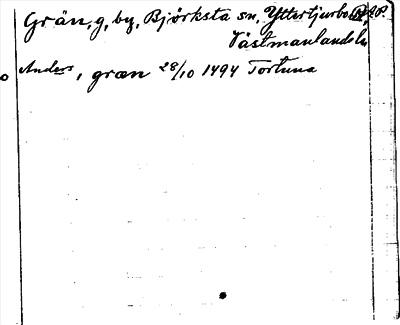 Grän, g, by, Björksta sn, Yttertjurbo
Västmanlands län
Anders, græn 28/10 1494 Tortuna